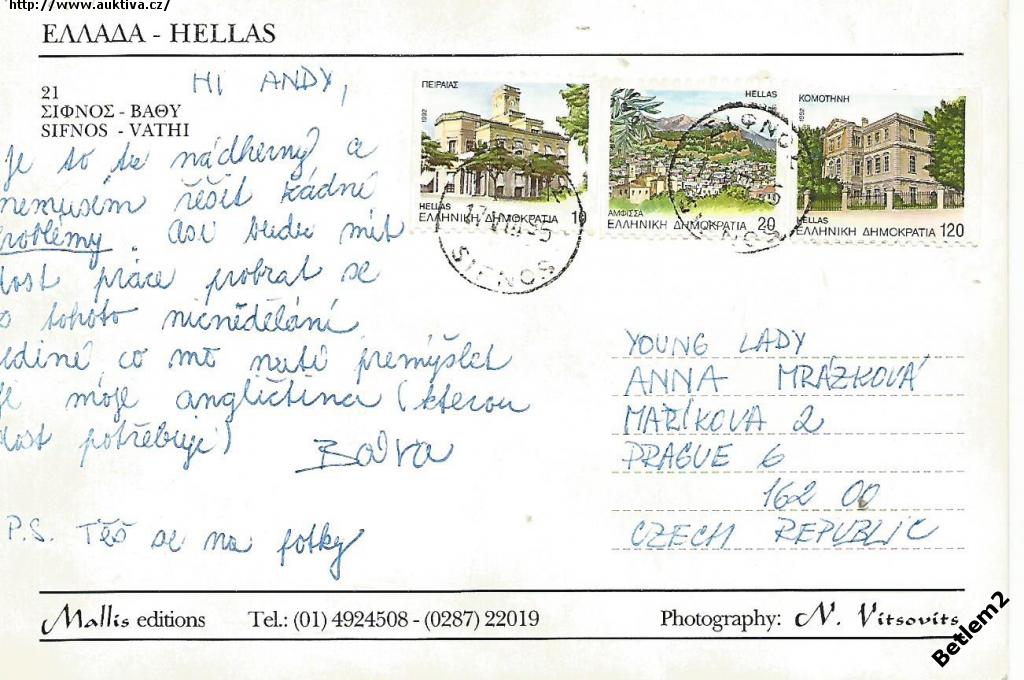 http://www.auktiva.cz/
ΕΛΛΑΔΑ - HELLAS
21
ΣΙΦΝΟΣ - ΒΑΘΥ
SIFNOS - VATHI
HI ANDY,
je to tu nádherný a
nemusím řěšit žádné
problémy. Asi budu mít
dost práce probrat se
z tohoto nicnědělání
jediné, co mě nutí přemýšlet
je moje angličtina (kterou
dost potřebuji)
P.S. Těš se na fotky
ΠΕΙΡΑΙΑΣ
1992
HELLAS
ΕΛΛΗΝΙΚΗ ΔΗΜΟΚΡΑΤΙΑ 10
HELLAS
ΑΜΦΙΣΣΑ
ΕΛΛΗΝΙΚΗ ΔΗΜΟΚΡΑΤΙΑ 20
ΚΟΜΟΤΗΝΗ
1992
HELLAS
ΕΛΛΗΝΙΚΗ ΔΗΜΟΚΡΑΤΙΑ 120
SIFNOS
YOUNG LADY
ANNA MRÁZKOVÁ
MAŘÍKOVA 2
PRAGUE 6
162 00
CZECH REPUBLIC
Mallis editions Tel.: (01) 4924508 - (0287) 22019 Photography: N. Vitsovits
Betlem2